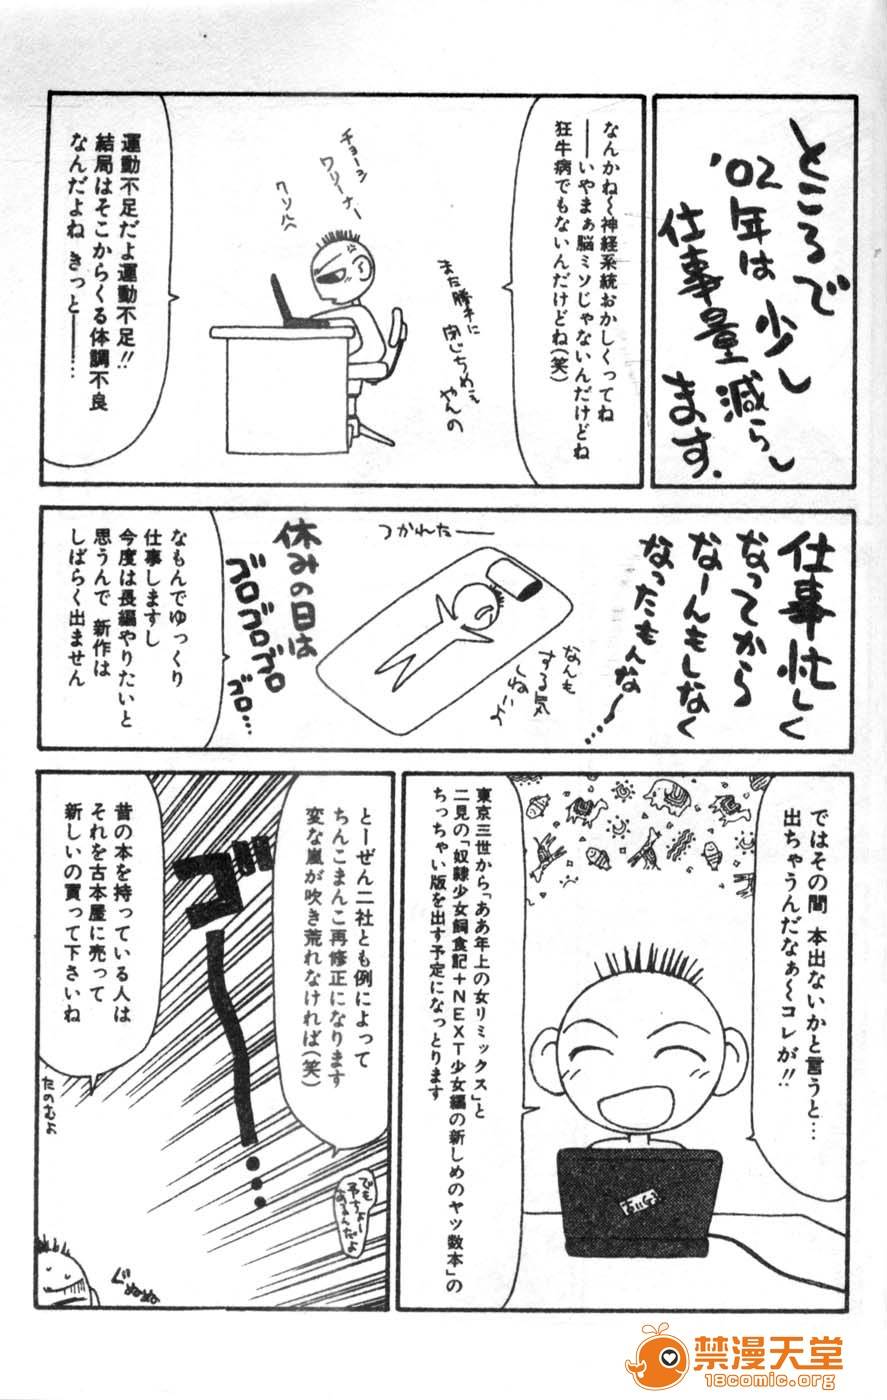 ところで
'02年は少し
仕事量減らし
ます.
なんかね〜神経系統おかしくってね
──いやまぁ脳ミソじゃないんだけどね
狂牛病でもないんだけどね(笑)
また勝手に
閉じちめぇ
やんの
チョーシ
ワリーナー
クソルァ
運動不足だよ運動不足!!
結局はそこからくる体調不良
なんだよね きっと──…
仕事忙しく
なってから
なーんもしなく
なったもんな〜…
なんも
する気
しねーよ
つかれたー
休みの日は
ゴロゴロゴロ
ゴロ…
なもんでゆっくり
仕事しますし
今度は長編やりたいと
思うんで 新作は
しばらく出ません
ではその間 本出ないかと言うと…
出ちゃうんだなぁ〜コレが!!
東京三世から「ああ年上の女リミックス」と
二見の「奴隷少女飼食記+NEXT少女編の新しめのヤツ数本」の
ちっちゃい版を出す予定になっとります
とーぜん二社とも例によって
ちんこまんこ再修正になります
変な嵐が吹き荒れなければ(笑)
でも
予ちょー
あるんだよ
ゴ──…
昔の本を持っている人は
それを古本屋に売って
新しいの買って下さいね
たのむよ
ぐぬぬぬ
禁漫天堂
18comic.org